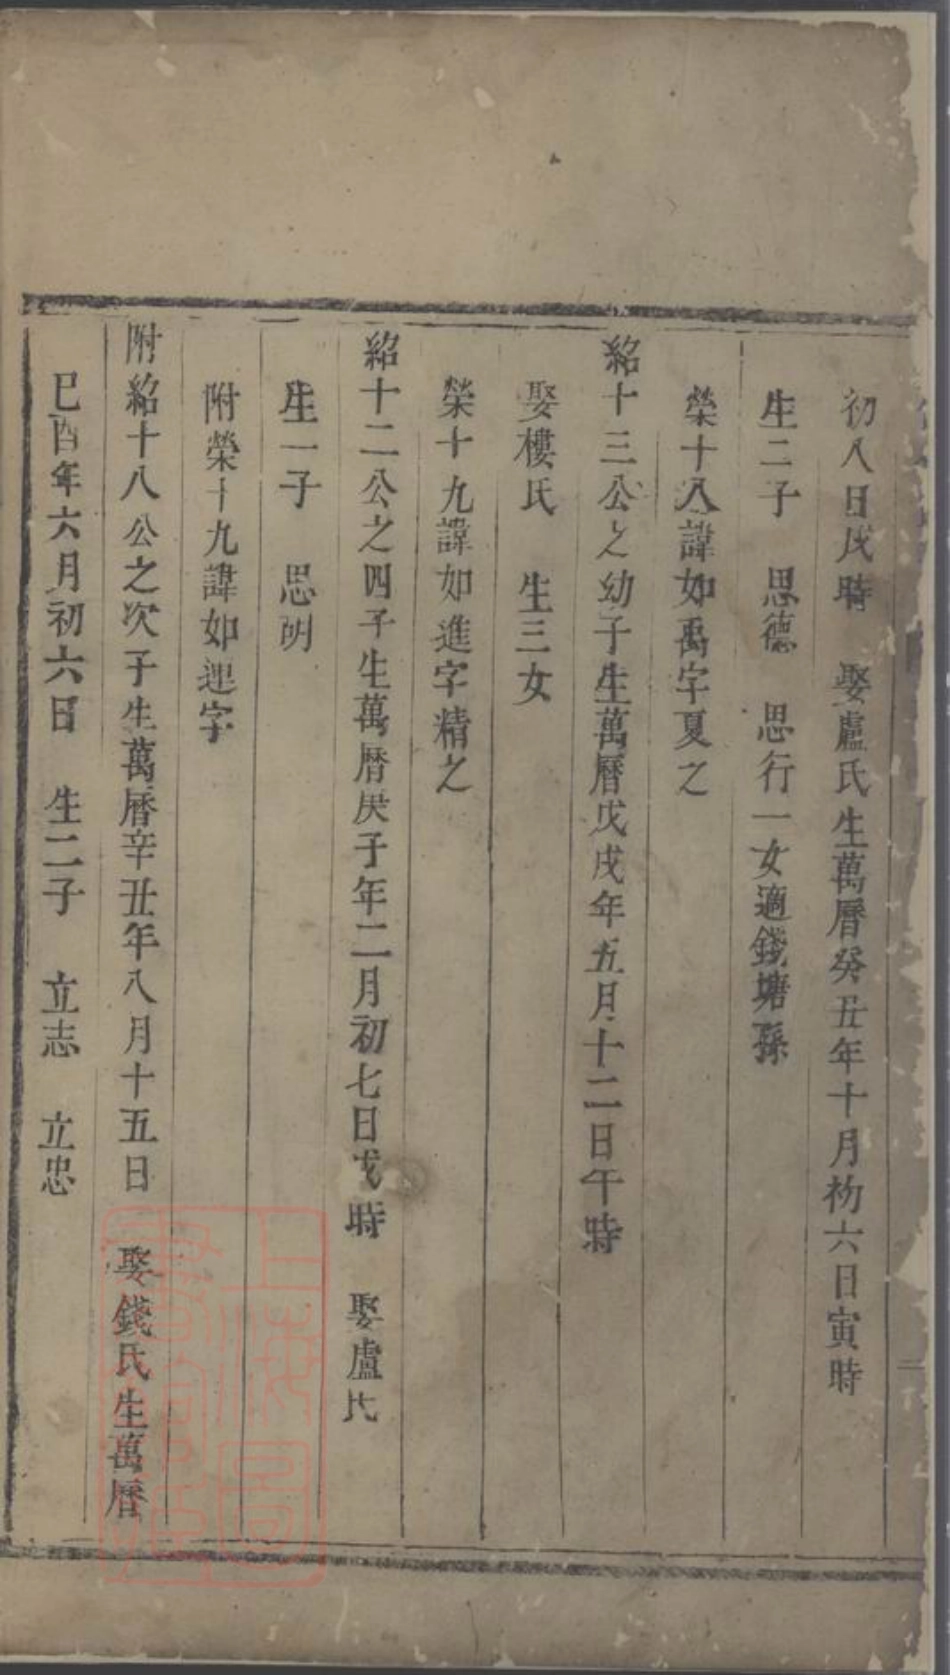 初八日戌時　娶盧氏生萬曆癸丑年十月初六日寅時
生二子　思德　思行一女適錢塘孫
榮十八諱如禹字夏之
紹十三公之幼子生萬曆戊戌年五月十二日午時
娶樓氏　生三女
榮十九諱如進字精之
紹十二公之四子生萬曆庚子年二月初七日戌時　娶盧氏
生一子　思明
附榮十九諱如逞字
附紹十八公之次子生萬曆辛丑年八月十五日　娶錢氏生萬曆
巳酉年六月初六日　生二子　立志　立忠
上海圖書館藏